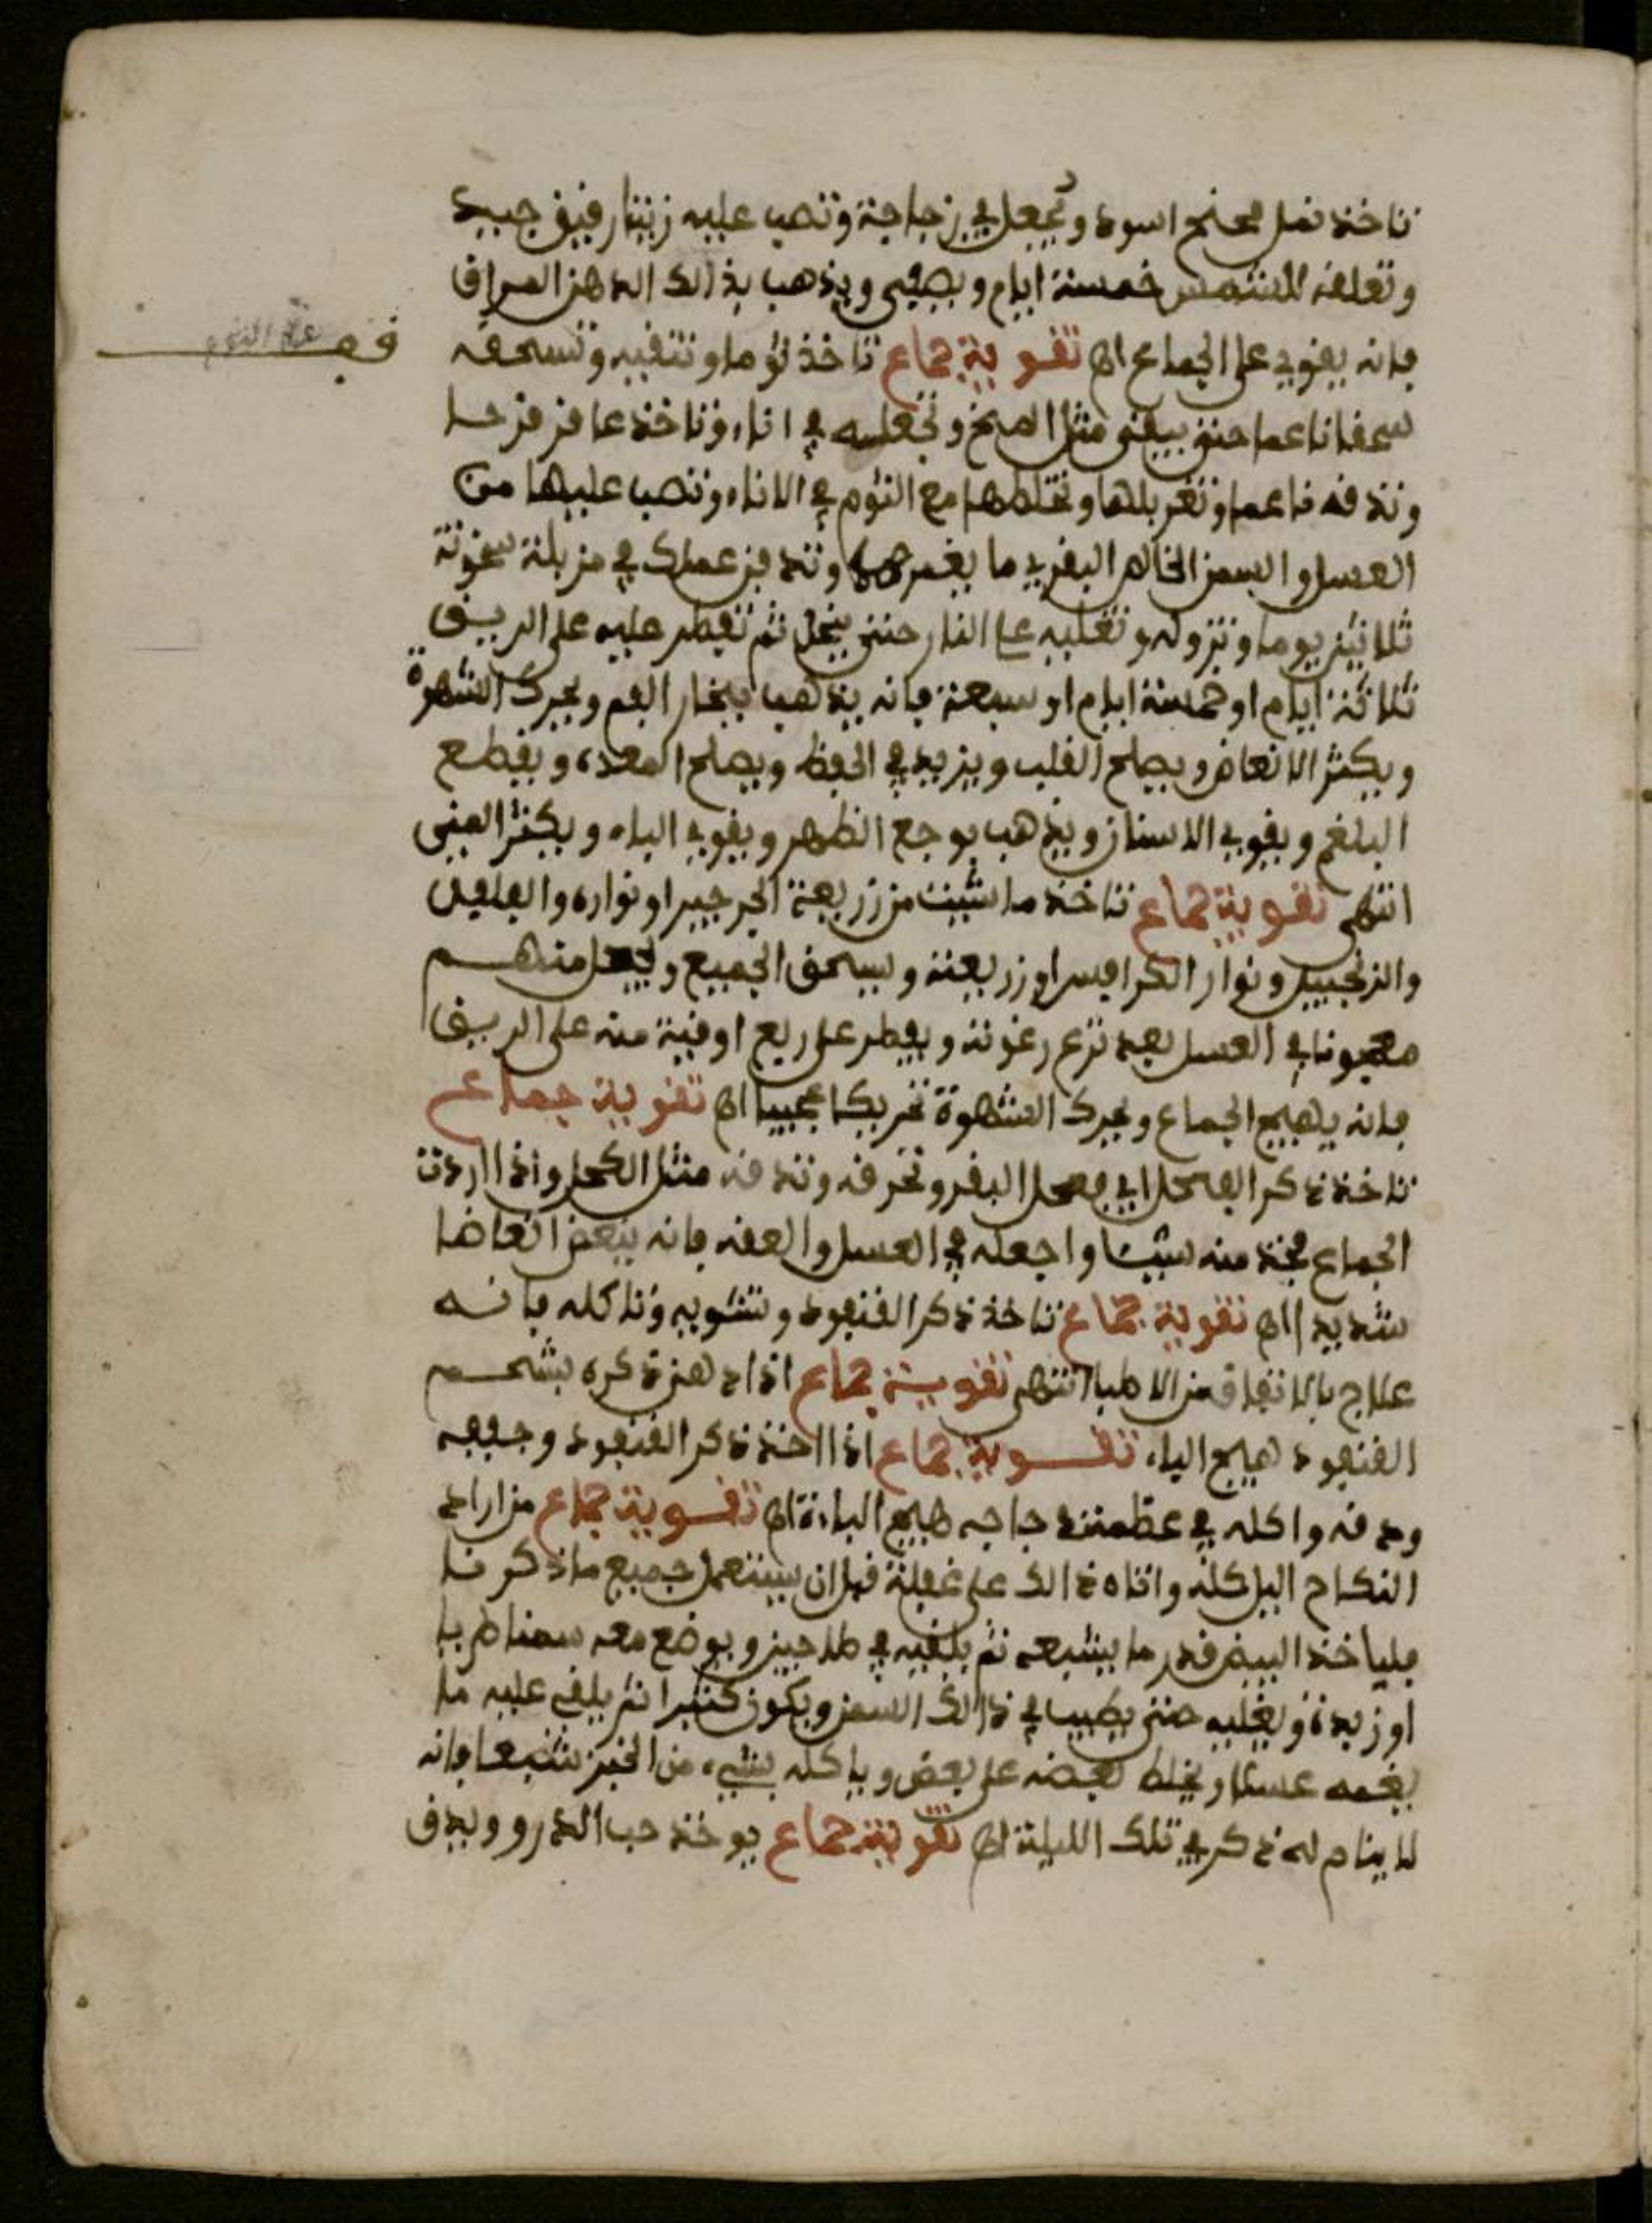 تاخذ نمل مجنح اسود وتجعل في زجاجة وتصب عليه زيتا رقيق جييد
وتعلقه للشمس خمسة ايام ويصفى ويذهب بذالك الدهن المراق
فانه يقوي على الجماع اهـ تقوية جماع تاخذ ثوما وتنقيه وتسحقه
سحقا ناعما حتى يبقى مثل المخ وتجعله في اناء وتاخذ عاقر قرحا
وتدقه ناعما وتغربلها وتخلطها مع الثوم في الاناء وتصب عليها من
العسل والسمن الخالص البقري ما يغمرها وتدفن عملك في مزبلة سخونة
ثلاثين يوما وتزوله وتغليه على النار حتى ينحل ثم تفطر عليه على الريق
ثلاثة ايام او خمسة ايام او سبعة فانه يذهب بخار الفم ويحرك الشهوة
ويكثر الانعاض ويصلح القلب ويزيد في الحفظ ويصلح المعدة ويقطع
البلغم ويقوي الاسنان ويذهب بوجع الظهر ويقوي الباه ويكثر المنى
انتهى تقوية جماع تاخذ ما شيت من زريعة الجرجير او نواره والفلفل
والزنجبيل ونوار الكرافس او زريعته ويسحق الجميع ويجعل منهم
معجونا في العسل بعد نزع رغوته ويفطر على ربع اوقية منه على الريق
فانه يهيج الجماع ويحرك الشهوة تحريكا عجيبا اهـ تقوية جماع
تاخذ ذكر الفحل اي فحل البقر وتحرقه وتدقه مثل الكحل واذا اردت
الجماع فخذ منه شيئا واجعله في العسل والعقه فانه ينعض انعاضا
شديدا اهـ تقوية جماع تاخذ ذكر القنفود وتشويه وتاكله فانه
علاج بالاتفاق من الاطبا انتهى تقوية جماع اذا دهن ذكره بشحم
القنفود هيج الباء تقوية جماع اذا اخذ ذكر القنفود وجففه
ودقه واكله في عظمت دجاجه هيج الباءة اهـ تقوية جماع من اراد
النكاح اليل كله واتاه ذالك على غفلة قبل ان يستعمل جميع ما ذكرنا
فلياخذ البيض قدر ما يشبعه ثم يلقيه في طاجين ويوضع معه سمنا طريا
او زبدة ويغليه حتى يطيب في ذالك السمن ويكون كثيرا ثم يلقى عليه ما
يغمه عسلا ويخلط بعضه على بعض وياكله بشيء من الخبز شبعا فانه
لا ينام له ذكر في تلك الليلة اهـ تقوية جماع يوخذ حب الدرو ويدق